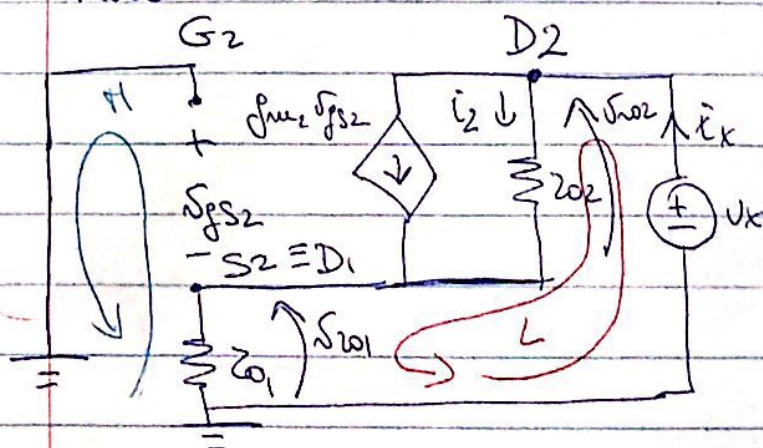 G2 D2
M gm2 vgs2 i2 ↓ vro2 ix
+
ro2 + − vx
vgs2
− S2 ≡ D1
ro1 vro1 L